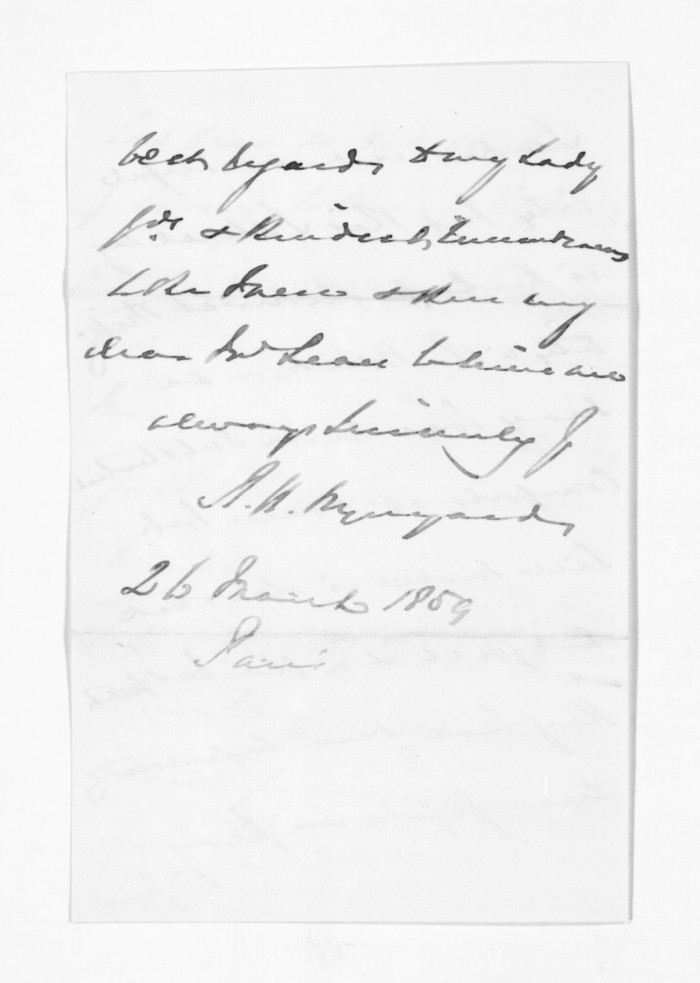 best regards to my Lady
& Kindest remembrances
to & then my
dear McLean believe me
always sincerely y
R. H. Wynyard
26 March 1859
Paris